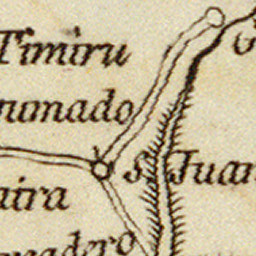 Timiru
numado
S. Juan
aira
madero